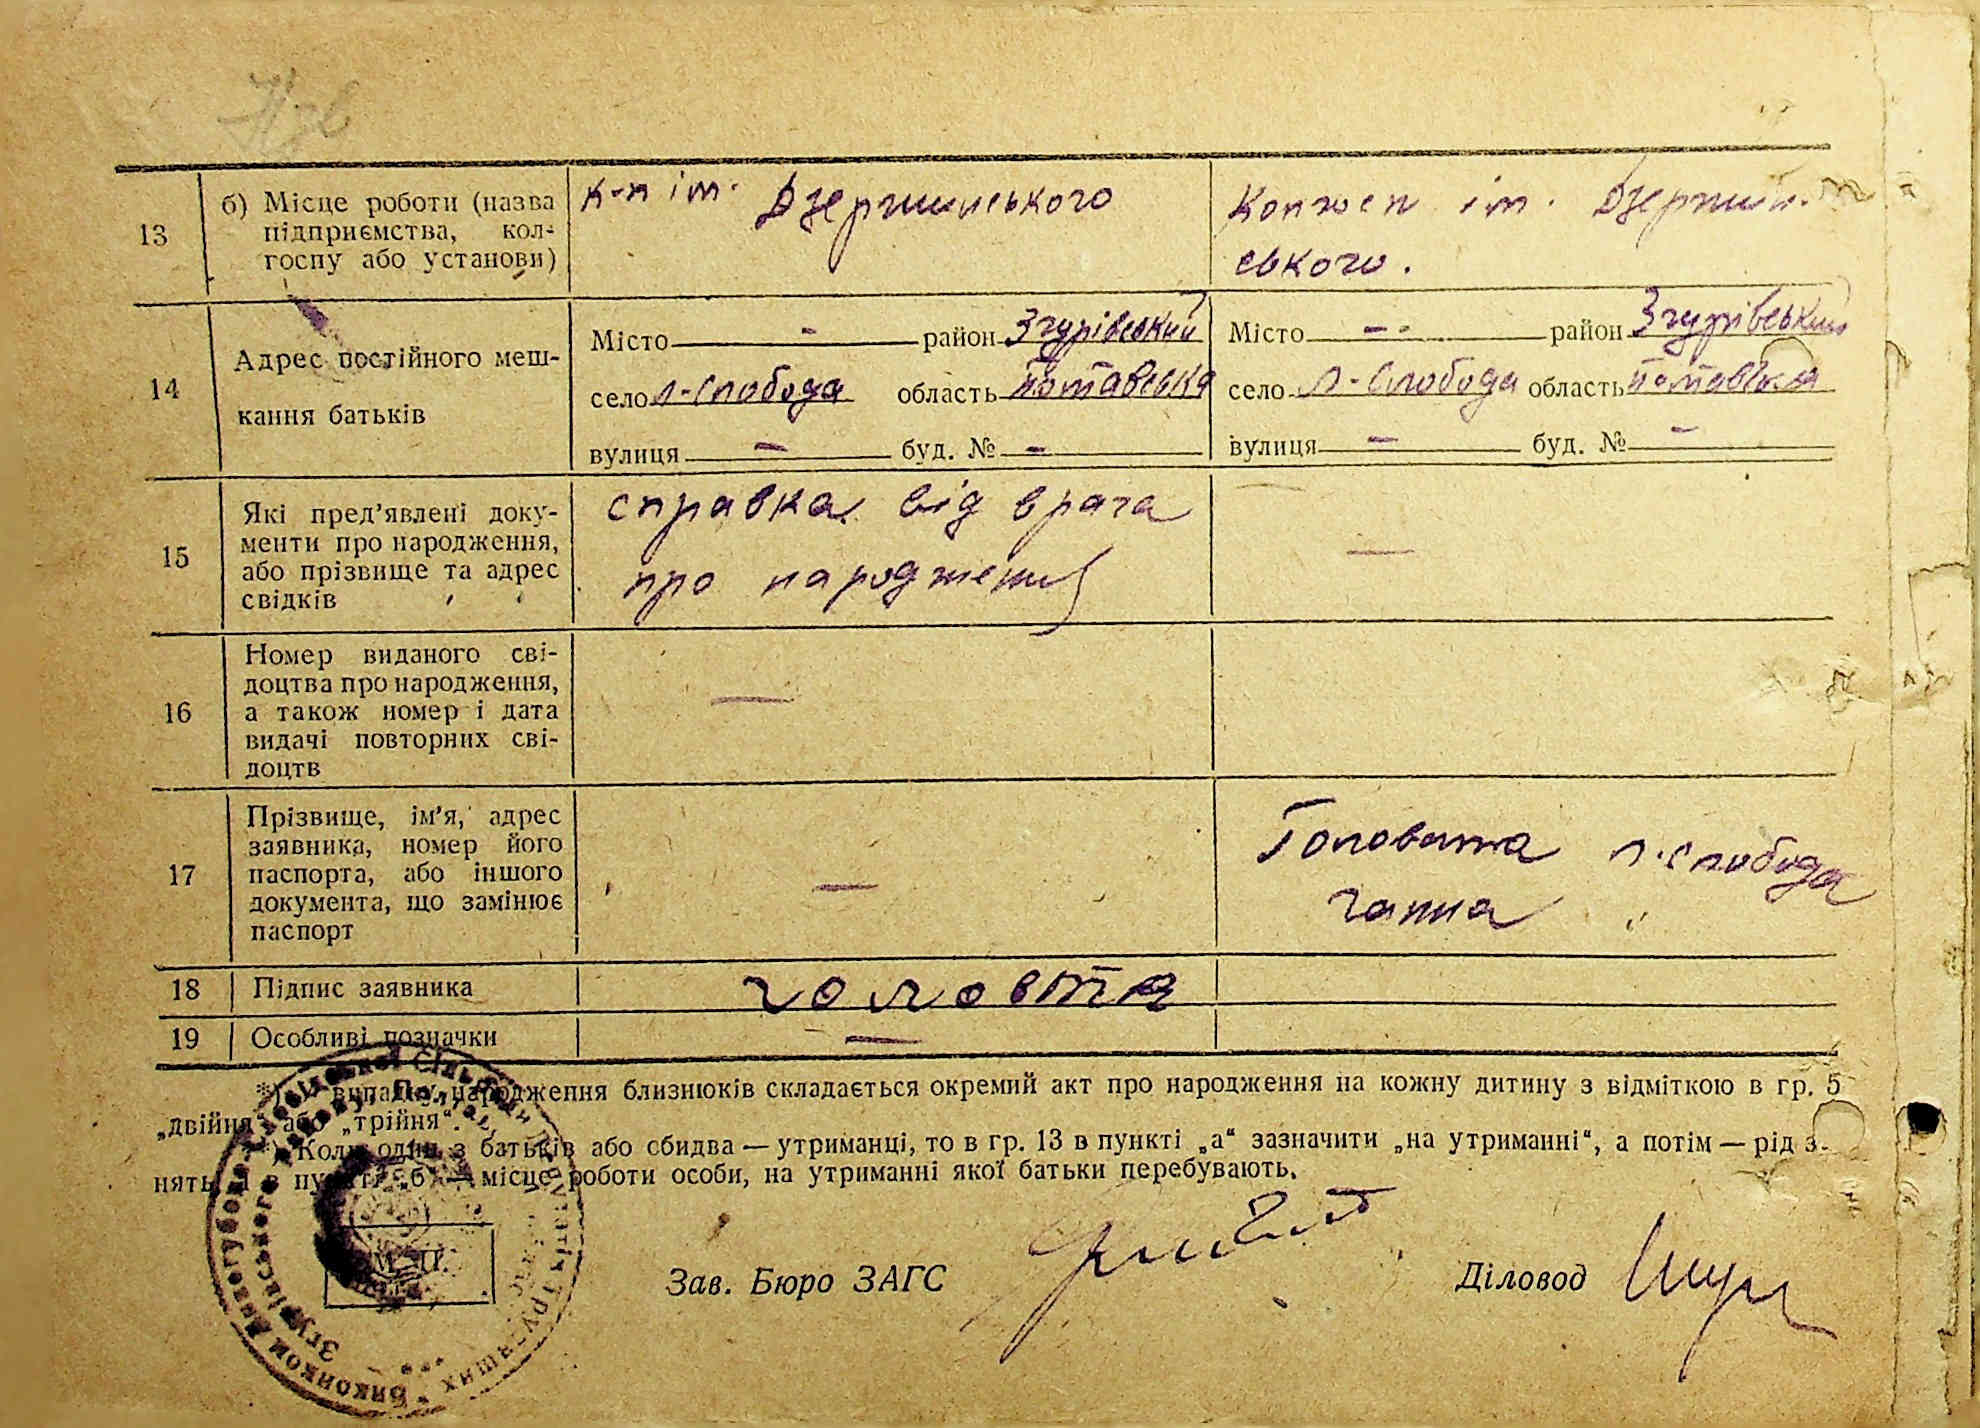 13
б) Місце роботи (назва
підприємства, кол-
госпу або установи)
к-п ім. Дзержинського
Колхоз ім. Дзержин-
ського.
14
Адрес постійного меш-
кання батьків
Місто - район Згурівський
село Л-Слобода область Полтавська
вулиця - буд. № -
Місто - - район Згурівський
село Л-Слобода область Полтавська
вулиця - буд. № -
15
Які пред’явлені доку-
менти про народження,
або прізвище та адрес
свідків
справка від врача
про народження
—
16
Номер виданого сві-
доцтва про народження,
а також номер і дата
видачі повторних сві-
доцтв
—
17
Прізвище, ім’я, адрес
заявника, номер його
паспорта, або іншого
документа, що замінює
паспорт
—
Головата Л-Слобода
Ганна
18
Підпис заявника
головта
19
Особливі позначки
—
*) випадку народження близнюків складається окремий акт про народження на кожну дитину з відміткою в гр. 5
„двійня“ або „трійня“.
) Коли один з батьків або обидва — утриманці, то в гр. 13 в пункті „а“ зазначити „на утриманні“, а потім — рід з-
нять, а в пункті „б“ — місце роботи особи, на утриманні якої батьки перебувають.
М. П.
Зав. Бюро ЗАГС
Діловод
Виконком
Згурівського
Трудящих